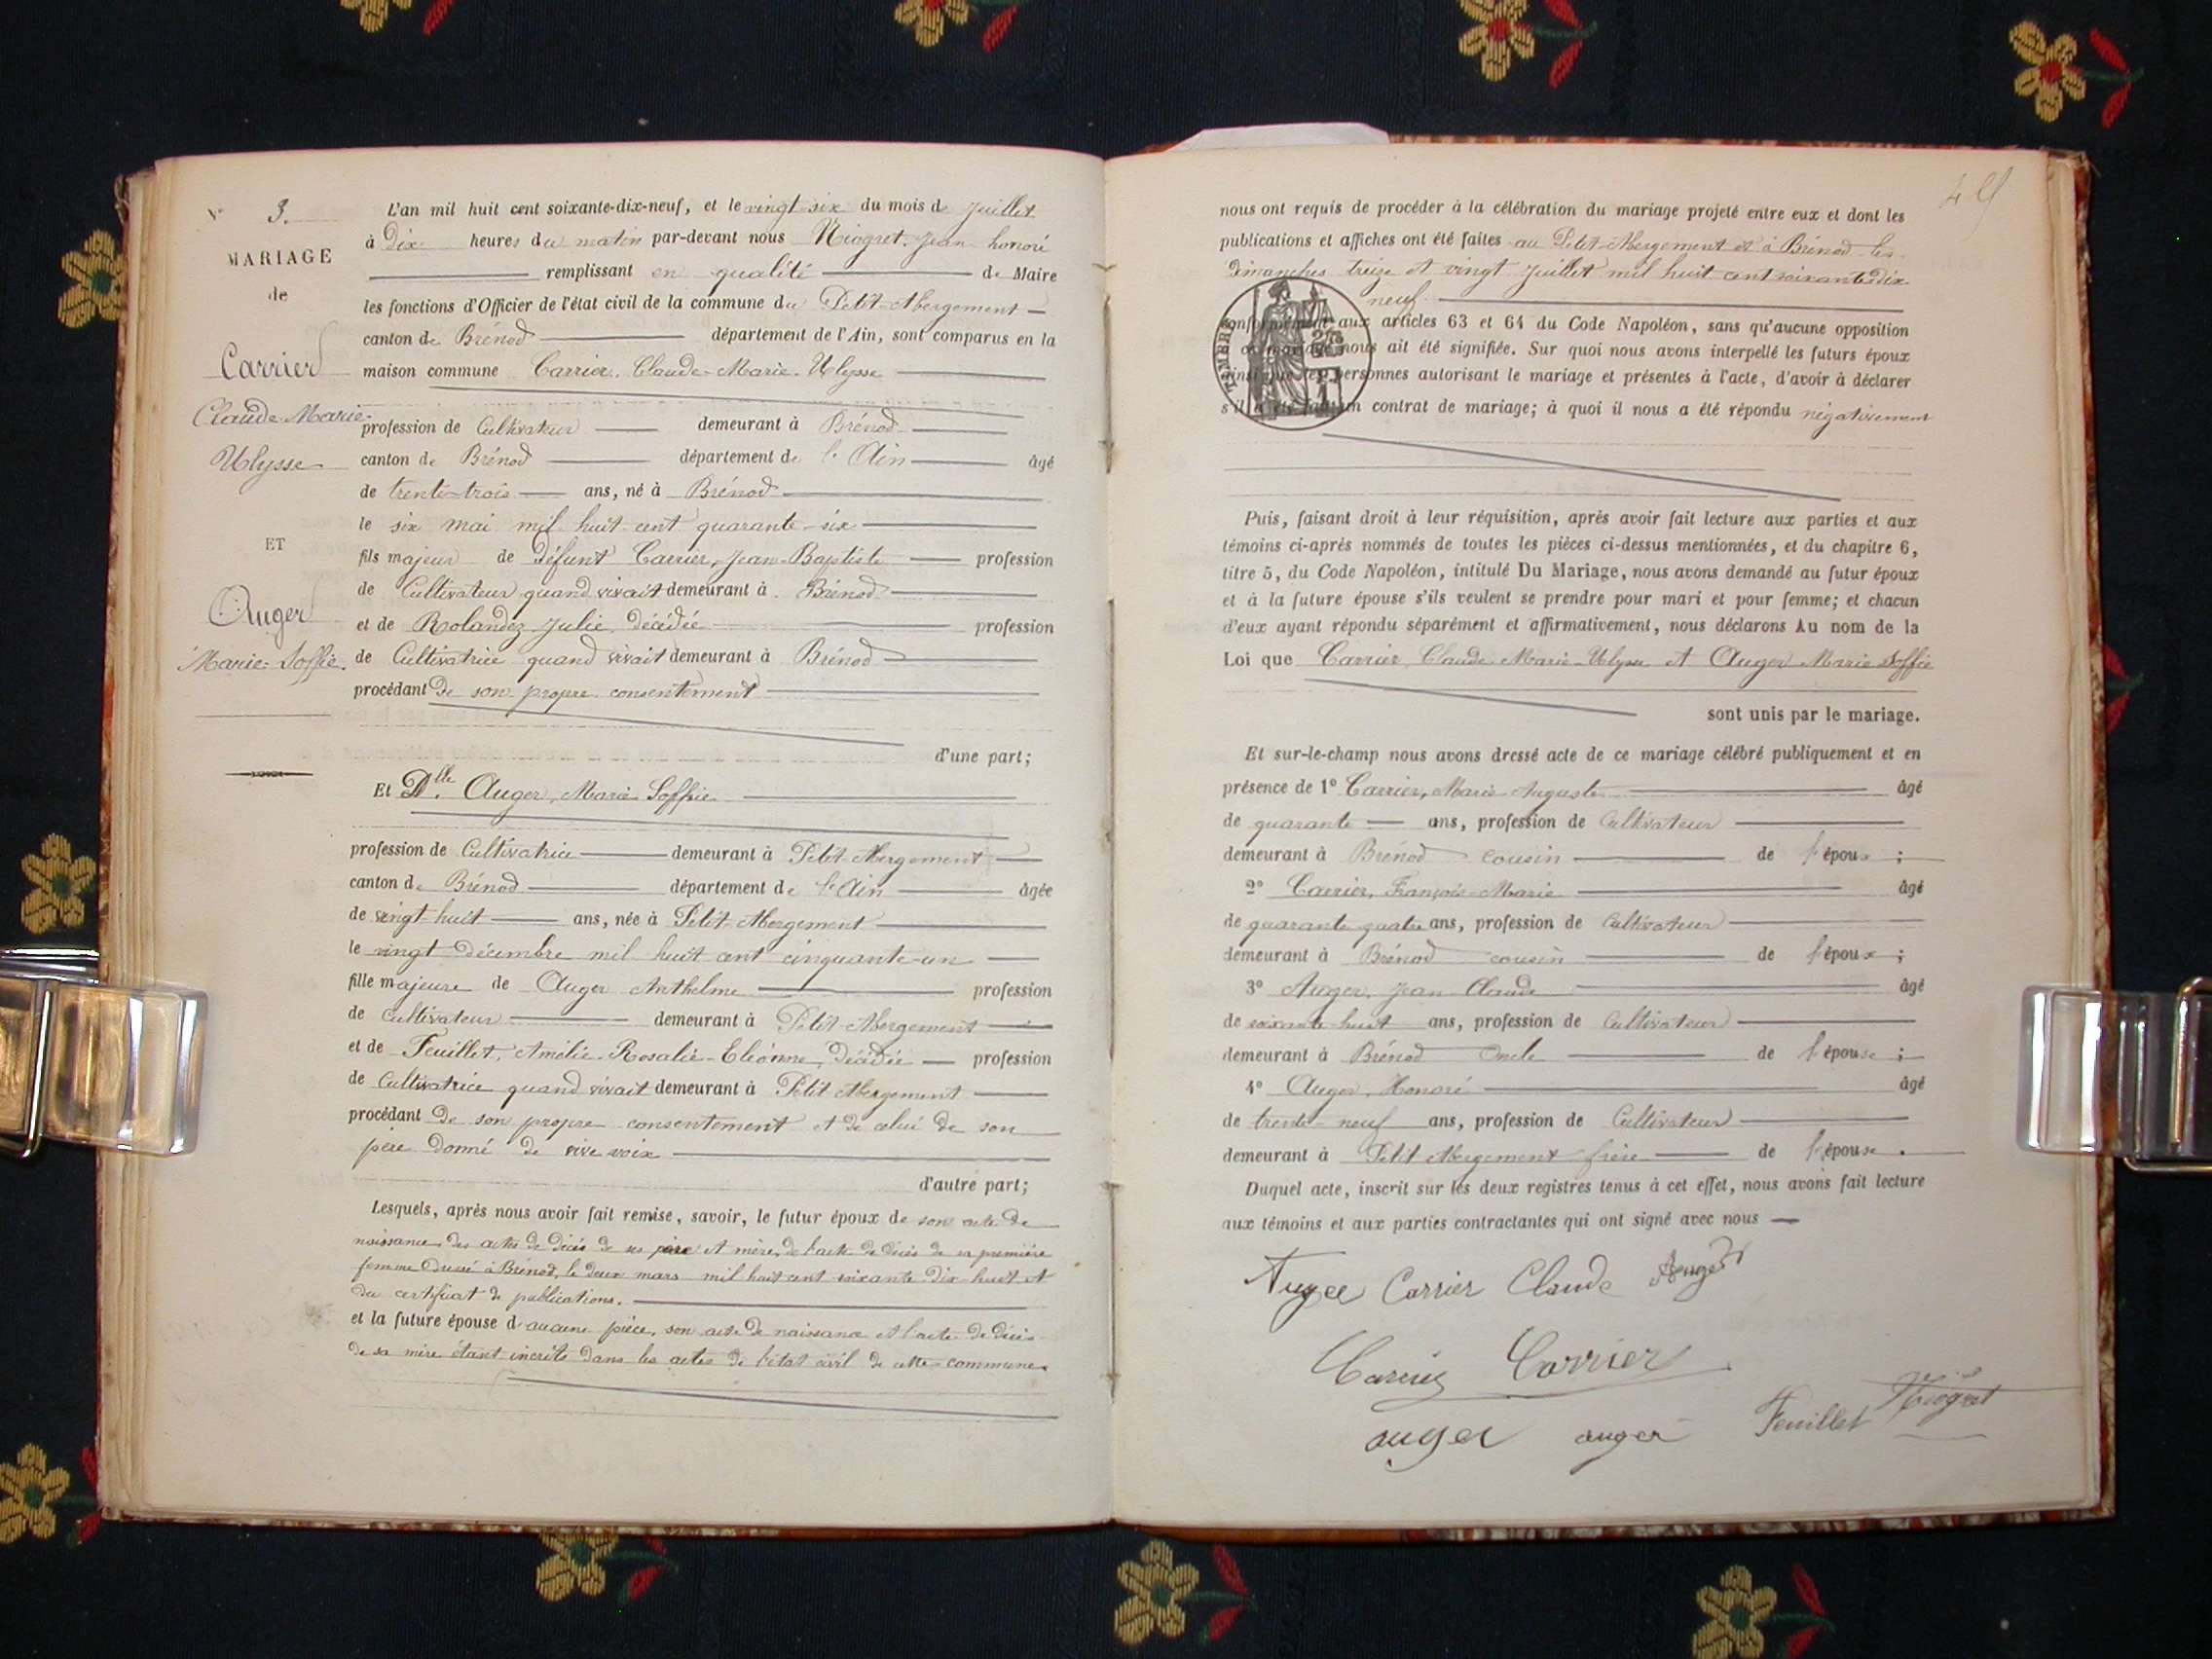 N° 3.
MARIAGE
de
Carrier
Claude-Marie-
Ulysse
ET
Auger
Marie-Soffie.
L'an mil huit cent soixante-dix-neuf, et le vingt-six du mois de Juillet
à Dix heures du matin par-devant nous Niogret, Jean honoré
remplissant en qualité de Maire
les fonctions d'Officier de l'état civil de la commune du Petit-Abergement
canton de Brénod département de l'Ain, sont comparus en la
maison commune Carrier, Claude-Marie-Ulysse
profession de Cultivateur demeurant à Brénod
canton de Brénod département de l'Ain âgé
de trente-trois ans, né à Brénod
le six mai mil huit cent quarante-six
fils majeur de défunt Carrier, Jean-Baptiste profession
de Cultivateur quand vivait demeurant à Brénod
et de Rolandez Julie, décédée profession
de Cultivatrice quand vivait demeurant à Brénod
procédant de son propre consentement
d'une part;
Et Dlle. Auger, Marie Soffie
profession de Cultivatrice demeurant à Petit-Abergement
canton de Brénod département de l'Ain âgée
de vingt-huit ans, née à Petit-Abergement
le vingt décembre mil huit cent cinquante-un
fille majeure de Auger Anthelme profession
de cultivateur demeurant à Petit-Abergement
et de Feuillet, Amélie-Rosalie-Eléonore, décédée profession
de Cultivatrice quand vivait demeurant à Petit-Abergement
procédant de son propre consentement et de celui de son
père donné de vive voix
d'autre part;
Lesquels, après nous avoir fait remise, savoir, le futur époux de son acte de
naissance, des actes de décès de ses père et mère, de l'acte de décès de sa première
femme dressé à Brénod, le deux mars mil huit cent soixante dix-huit et
du certificat de publications.
et la future épouse d'aucune pièce, son acte de naissance et l'acte de décès
de sa mère étant incrits dans les actes de l'état civil de cette commune.
45
nous ont requis de procéder à la célébration du mariage projeté entre eux et dont les
publications et affiches ont été faites au Petit-Abergement et à Brénod les
dimanches treize et vingt Juillet mil huit cent soixante dix
neuf
TIMBRE
conformément aux articles 63 et 64 du Code Napoléon, sans qu'aucune opposition
ce mariage nous ait été signifiée. Sur quoi nous avons interpellé les futurs époux
ainsi que les personnes autorisant le mariage et présentes à l'acte, d'avoir à déclarer
s'il a été fait un contrat de mariage; à quoi il nous a été répondu négativement
Puis, faisant droit à leur réquisition, après avoir fait lecture aux parties et aux
témoins ci-après nommés de toutes les pièces ci-dessus mentionnées, et du chapitre 6,
titre 5, du Code Napoléon, intitulé Du Mariage, nous avons demandé au futur époux
et à la future épouse s'ils veulent se prendre pour mari et pour femme; et chacun
d'eux ayant répondu séparément et affirmativement, nous déclarons Au nom de la
Loi que Carrier, Claude-Marie-Ulysse et Auger Marie Soffie
sont unis par le mariage.
Et sur-le-champ nous avons dressé acte de ce mariage célébré publiquement et en
présence de 1° Carrier, Marie Auguste âgé
de quarante ans, profession de Cultivateur
demeurant à Brénod cousin de l'époux ;
2° Carrier, François-Marie âgé
de quarante quatre ans, profession de Cultivateur
demeurant à Brénod cousin de l'époux ;
3° Auger, Jean Claude âgé
de soixante-huit ans, profession de Cultivateur
demeurant à Brénod Oncle de l'épouse ;
4° Auger, Honoré âgé
de trente-neuf ans, profession de Cultivateur
demeurant à Petit-Abergement frère de l'épouse .
Duquel acte, inscrit sur les deux registres tenus à cet effet, nous avons fait lecture
aux témoins et aux parties contractantes qui ont signé avec nous
Auger Carrier Claude Auger
Carrier Carrier
auger auger Feuillet Niogret